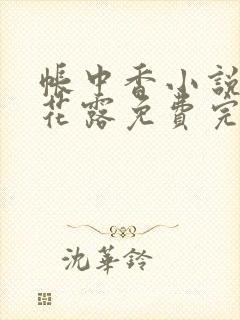 帳中香小說
花露免費完
沈華鈴